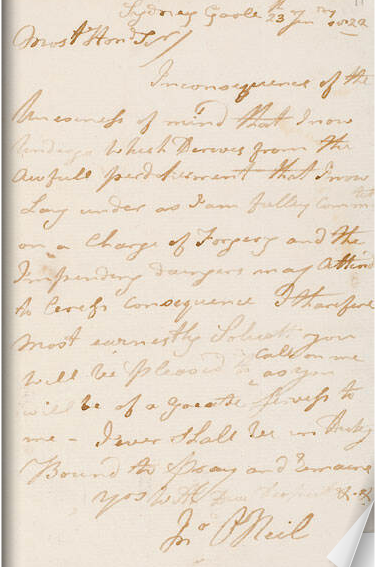 Sydney Goole 23 Jan 1822
Most Hond Sir
Inconsequence of the
Uneseness of mind that I now
Undergo Which Derives from the
Awfull perdickerment that I now
Lay under as I am fulley Committ
on a Charge of Forgery and the
Impending dangers may Attend
to Cerch consequence I therefore
Most earnestly Solicit you
will be pleased to Call on me
as you
will be of a greate Serviss to
me - I ever Shall be in Duty
Bound to Pray and remane
yos With Due Respect &c &c
Jno O'Neil